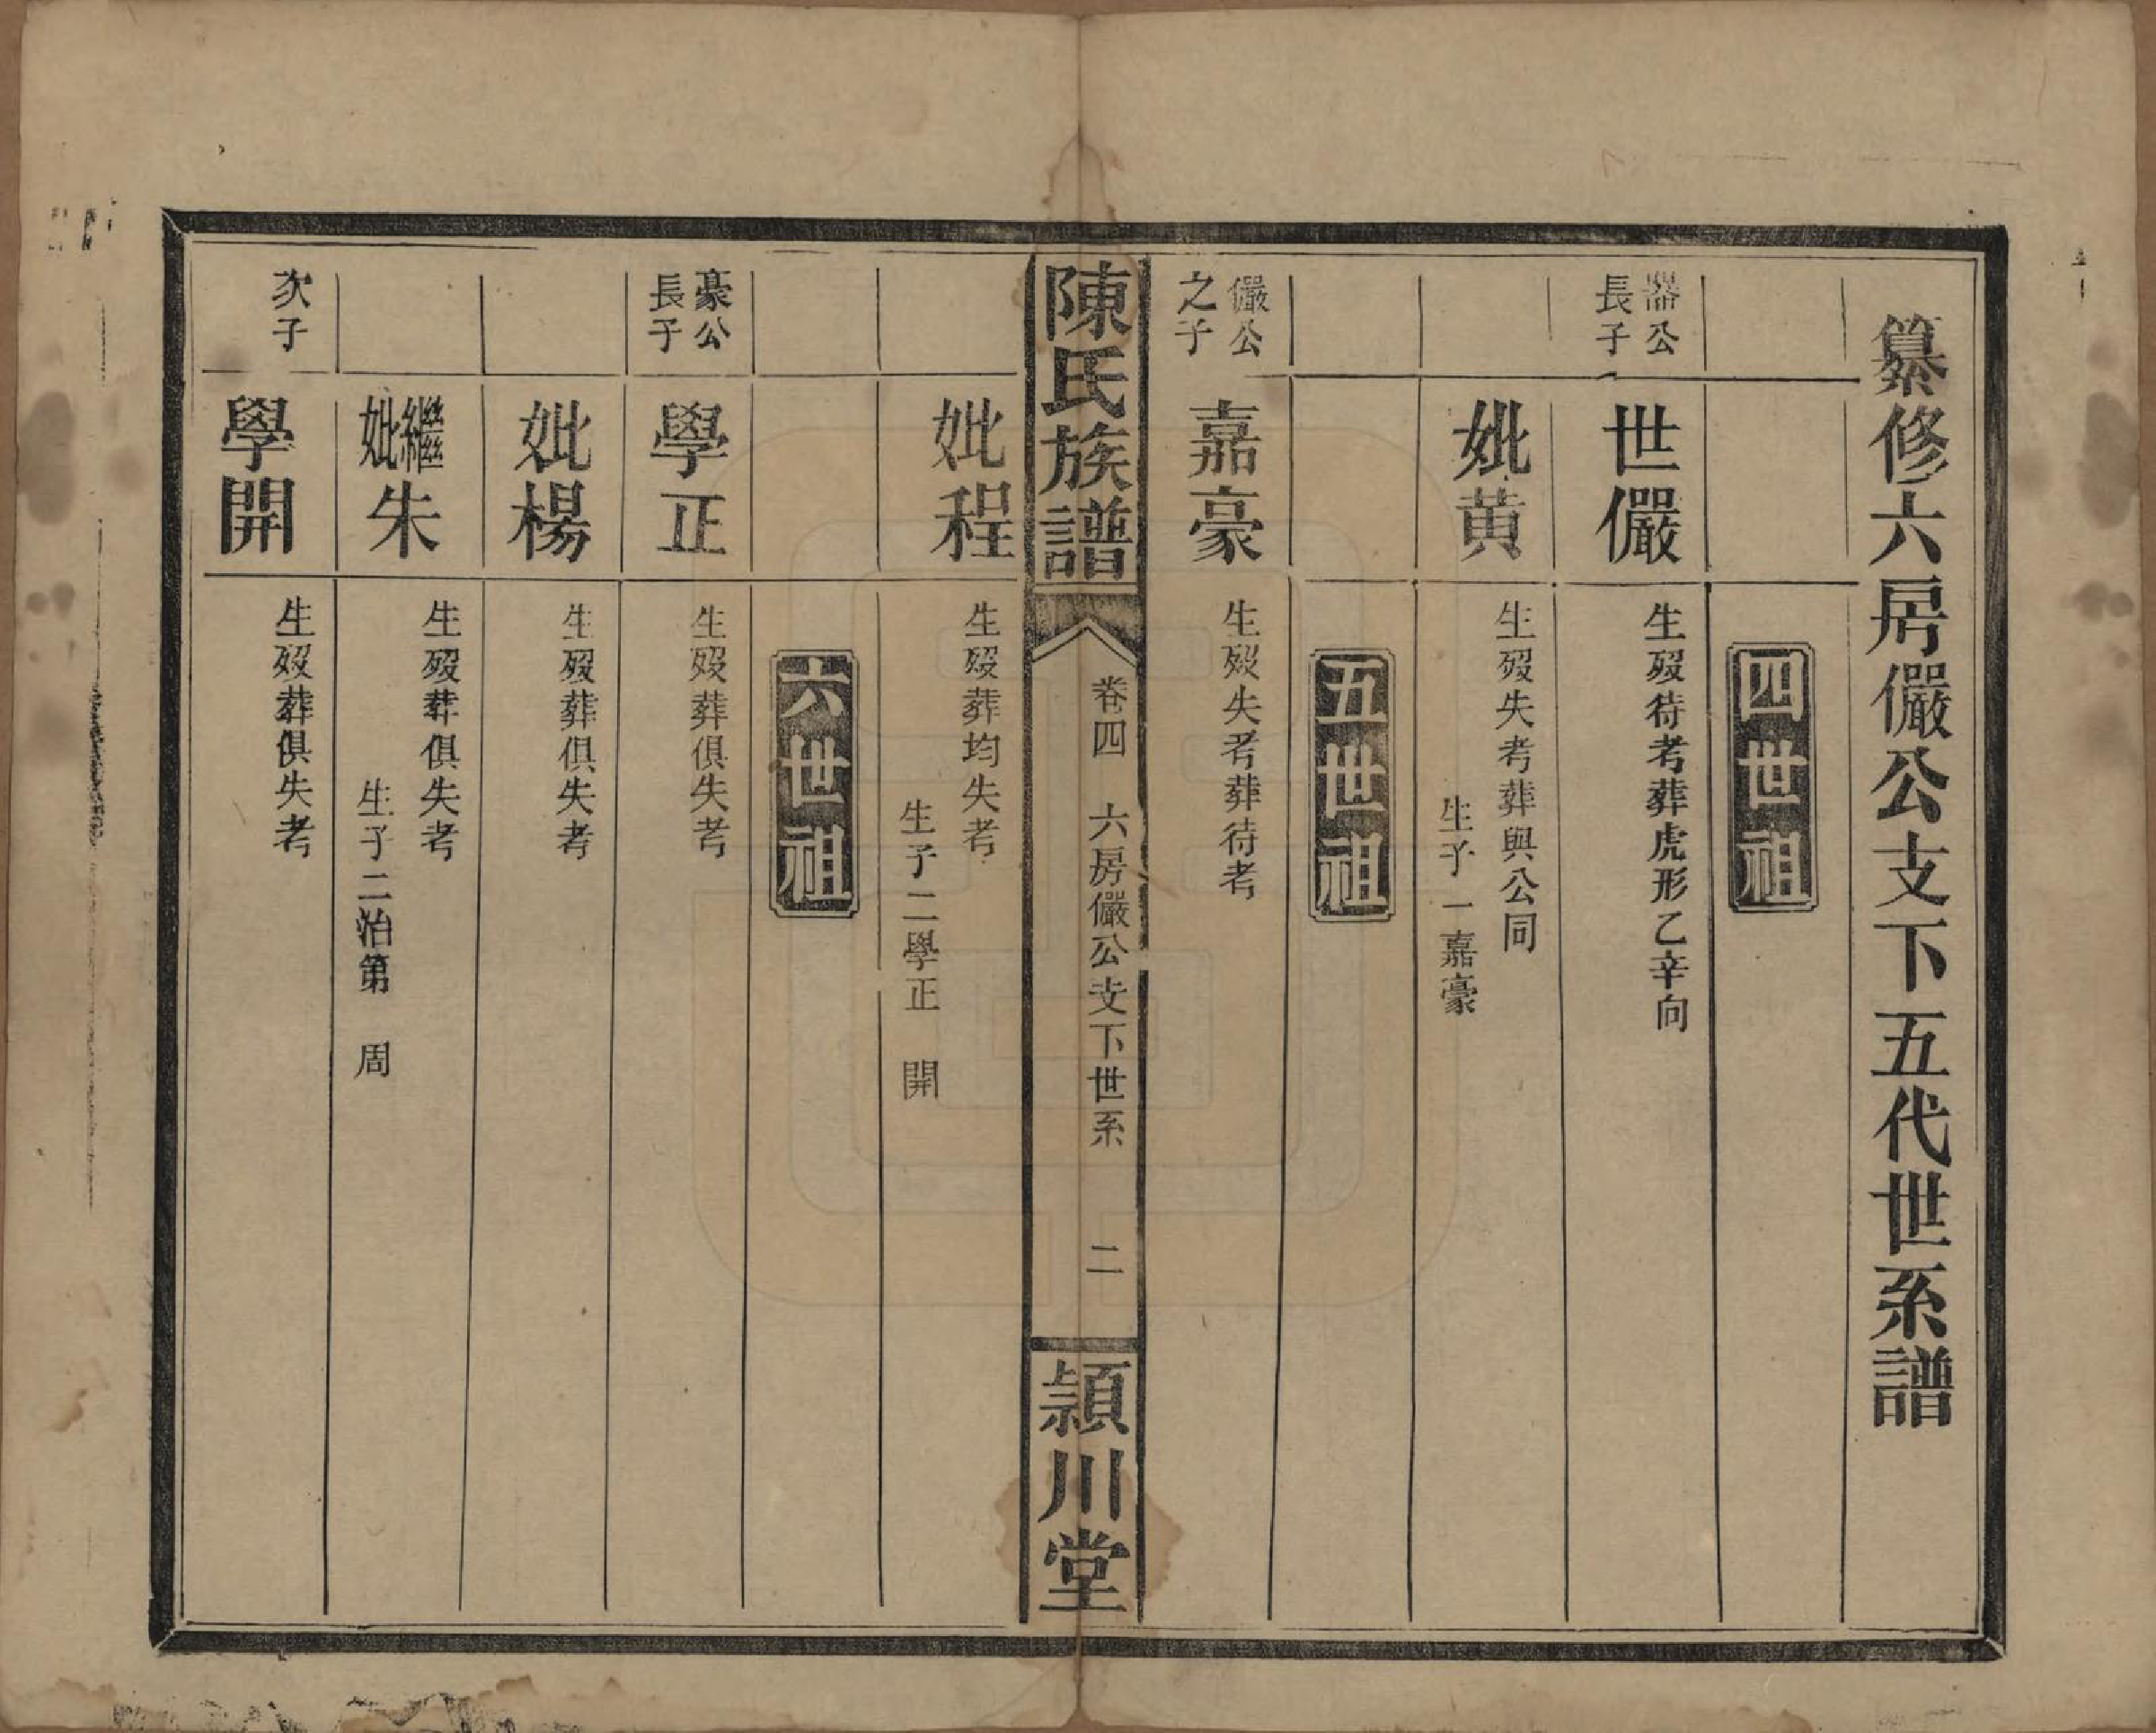 纂修六房儼公支下五代世系譜
四世祖
器公
長子
世儼
生歿待考葬虎形乙辛向
妣黃
生歿失考葬與公同
生子一嘉豪
五世祖
儼公
之子
嘉豪
生歿失考葬待考
陳氏族譜
卷四 六房儼公支下世系 二
潁川堂
妣程
生歿葬均失考
生子二學正 開
六世祖
豪公
長子
學正
生歿葬俱失考
妣楊
生歿葬俱失考
繼
妣
朱
生歿葬俱失考
生子二治第 周
次子
學開
生歿葬俱失考